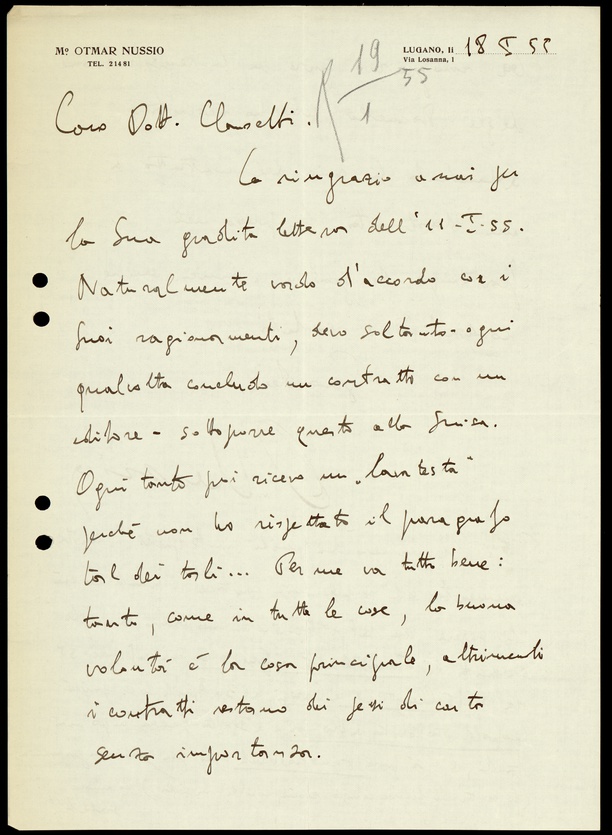 Mº OTMAR NUSSIO
TEL. 21481
LUGANO, li 18 I 55
Via Losanna, 1
R 19/55
1
Caro Dott. Clausetti.
La ringrazio assai per
la Sua gradita lettera dell'11-I-55.
Naturalmente vado d'accordo con i
Suoi ragionamenti, devo soltanto - ogni
qualvolta concludo un contratto con un
editore - sottoporre questo alla Suisa.
Ogni tanto poi ricevo un „lavatesta"
perché non ho rispettato il paragrafo
tal dei tali... Per me va tutto bene:
tanto, come in tutte le cose, la buona
volontà è la cosa principale, altrimenti
i contratti restano dei pezzi di carta
senza importanza.